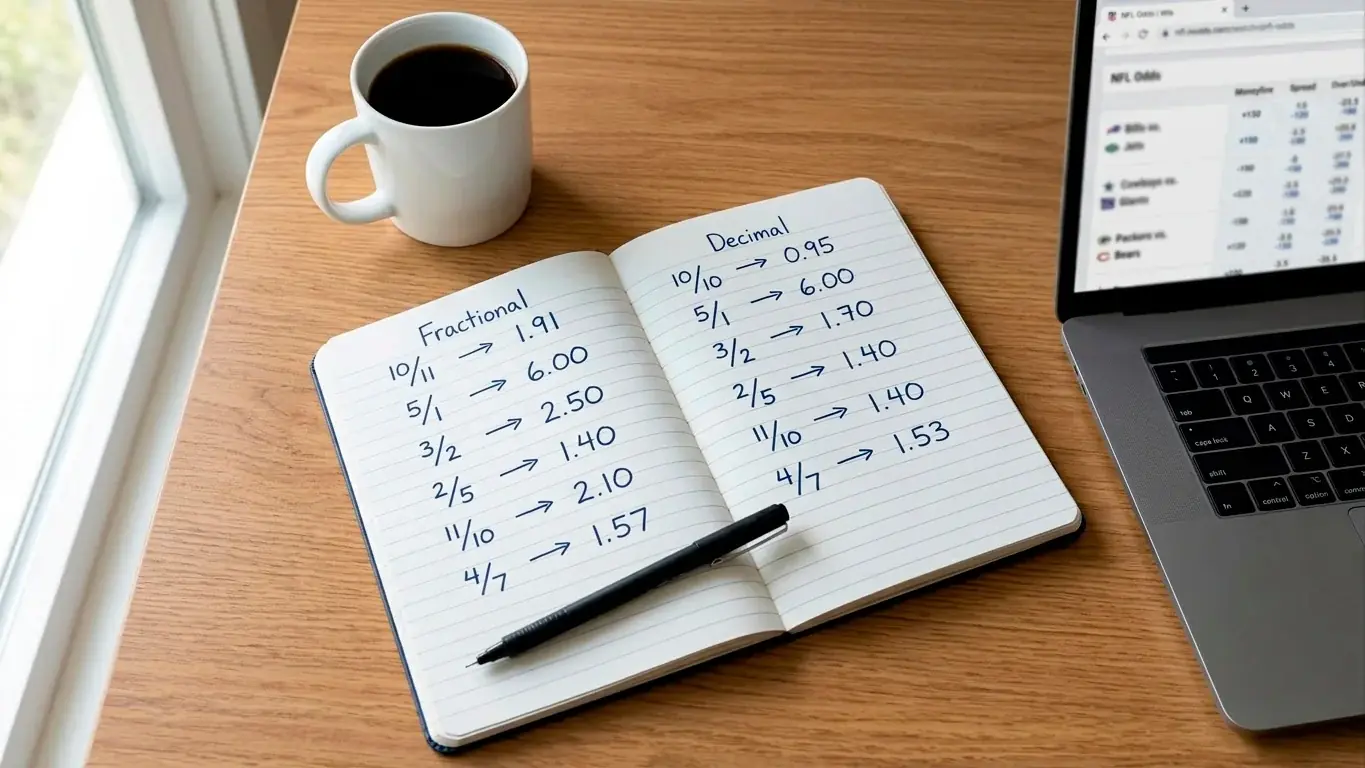 Fractional
10/11 → 1.91
5/1 → 6.00
3/2 → 2.50
2/5 → 1.40
11/10 → 2.10
4/7 → 1.57
Decimal
10/10 → 0.95
5/1 → 6.00
3/2 → 1.70
2/5 → 1.40
11/10 → 1.40
4/7 → 1.53
NFL Odds
NFL Odds
Moneyline Spread
Bills vs.
Jets
Cowboys vs.
Giants
Packers vs.
Bears
1 2 3 4
tab Q W E
caps lock A S D
shift Z X
fn control option